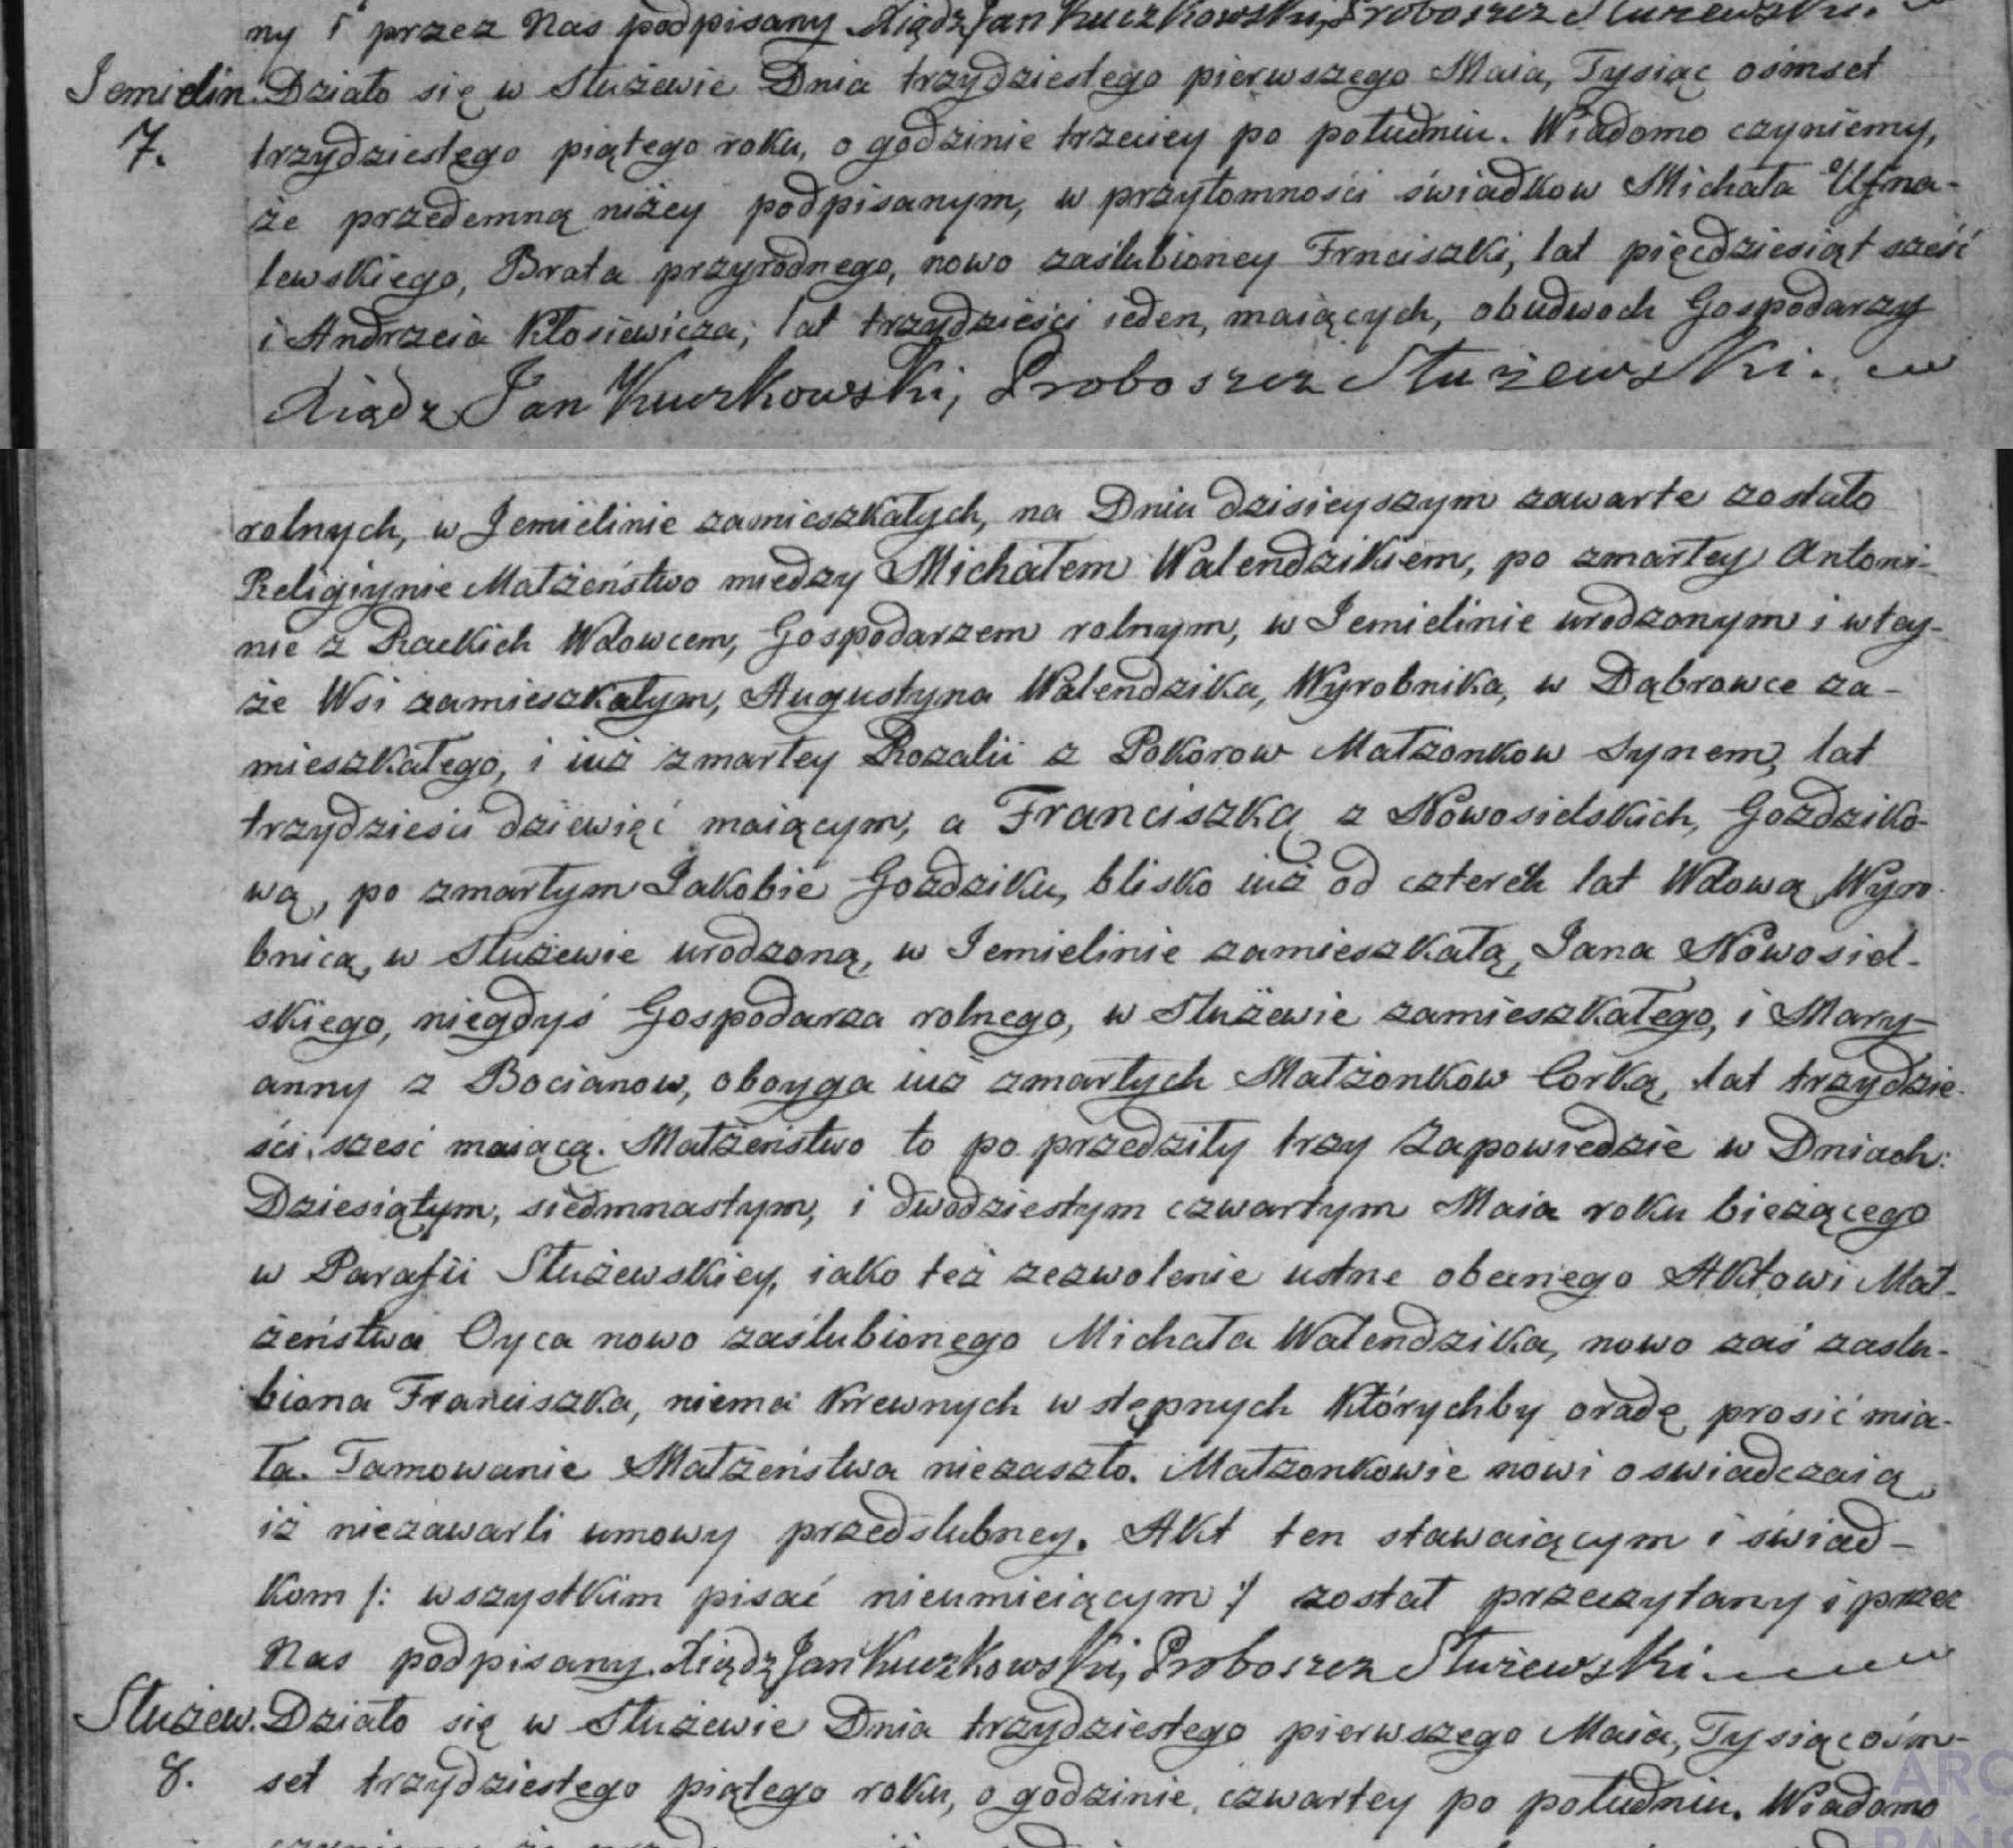 ny i przez Nas podpisany Xiądz Jan Kuczkowski, Proboszcz Służewski.
Jemielin. Działo się w Służewie Dnia trzydziestego pierwszego Maia, Tysiąc ośmset
7. trzydziestego piątego roku, o godzinie trzeciey po południu. Wiadomo czyniemy,
że przedemną niżey podpisanym, w przytomności świadkow Michała Ufna-
lewskiego, Brata przyrodnego, nowo zaślubioney Frnciszki, lat pięcdziesiąt sześć
i Andrzeia Kłosiewicza, lat trzydzieści ieden, maiących, obudwoch Gospodarzy
Xiądz Jan Kuczkowski, Proboszcz Służewski.
rolnych, w Jemielinie zamieszkałych, na Dniu dzisieyszym zawarte zostało
Religiynie Małżeństwo miedzy Michałem Walendzikiem, po zmarłey Antoni-
nie z Rackich Wdowcem, Gospodarzem rolnym, w Jemielinie urodzonym i w tey-
że Wsi zamieszkałym, Augustyna Walendzika, Wyrobnika, w Dąbrowce za-
mieszkałego, i iuż zmarłey Rozalii z Pokorow Małżonkow synem, lat
trzydzieści dziewięć maiącym, a Franciszką z Nowosielskich, Gozdziko-
wą, po zmarłym Jakobie Gozdziku, blisko iuż od czterech lat Wdową, Wyro-
bnicą, w Służewie urodzoną, w Jemielinie zamieszkałą, Jana Nowosiel-
skiego, niegdyś Gospodarza rolnego, w Służewie zamieszkałego, i Mary-
anny z Bocianow, oboyga iuż zmarłych Małżonkow Corką, lat trzydzie-
ści sześć maiącą. Małżeństwo to po przedziły trzy Zapowiedzie w Dniach:
Dziesiątym, siedmnastym, i dwodziestym czwartym Maia roku bieżącego
w Parafii Służewskiey, iako też zezwolenie ustne obecnego Aktowi Mał-
żeństwa Oyca nowo zaślubionego Michała Walendzika, nowo zaś zaślu-
biona Franciszka, niema krewnych wstępnych którychby oradę prosić mia-
ła. Tamowanie Małżeństwa niezaszło. Małżonkowie nowi oswiadczaią
iż niezawarli umowy przedślubney. Akt ten stawaiącym i świad-
kom /: wszystkim pisać nieumieiącym :/ został przeczytany i przez
Nas podpisany. Xiądz Jan Kuczkowski, Proboszcz Służewski.
Służew. Działo się w Służewie Dnia trzydziestego pierwszego Maia, Tysiąc ośm-
8. set trzydziestego piątego roku, o godzinie, czwartey po południu. Wiadomo